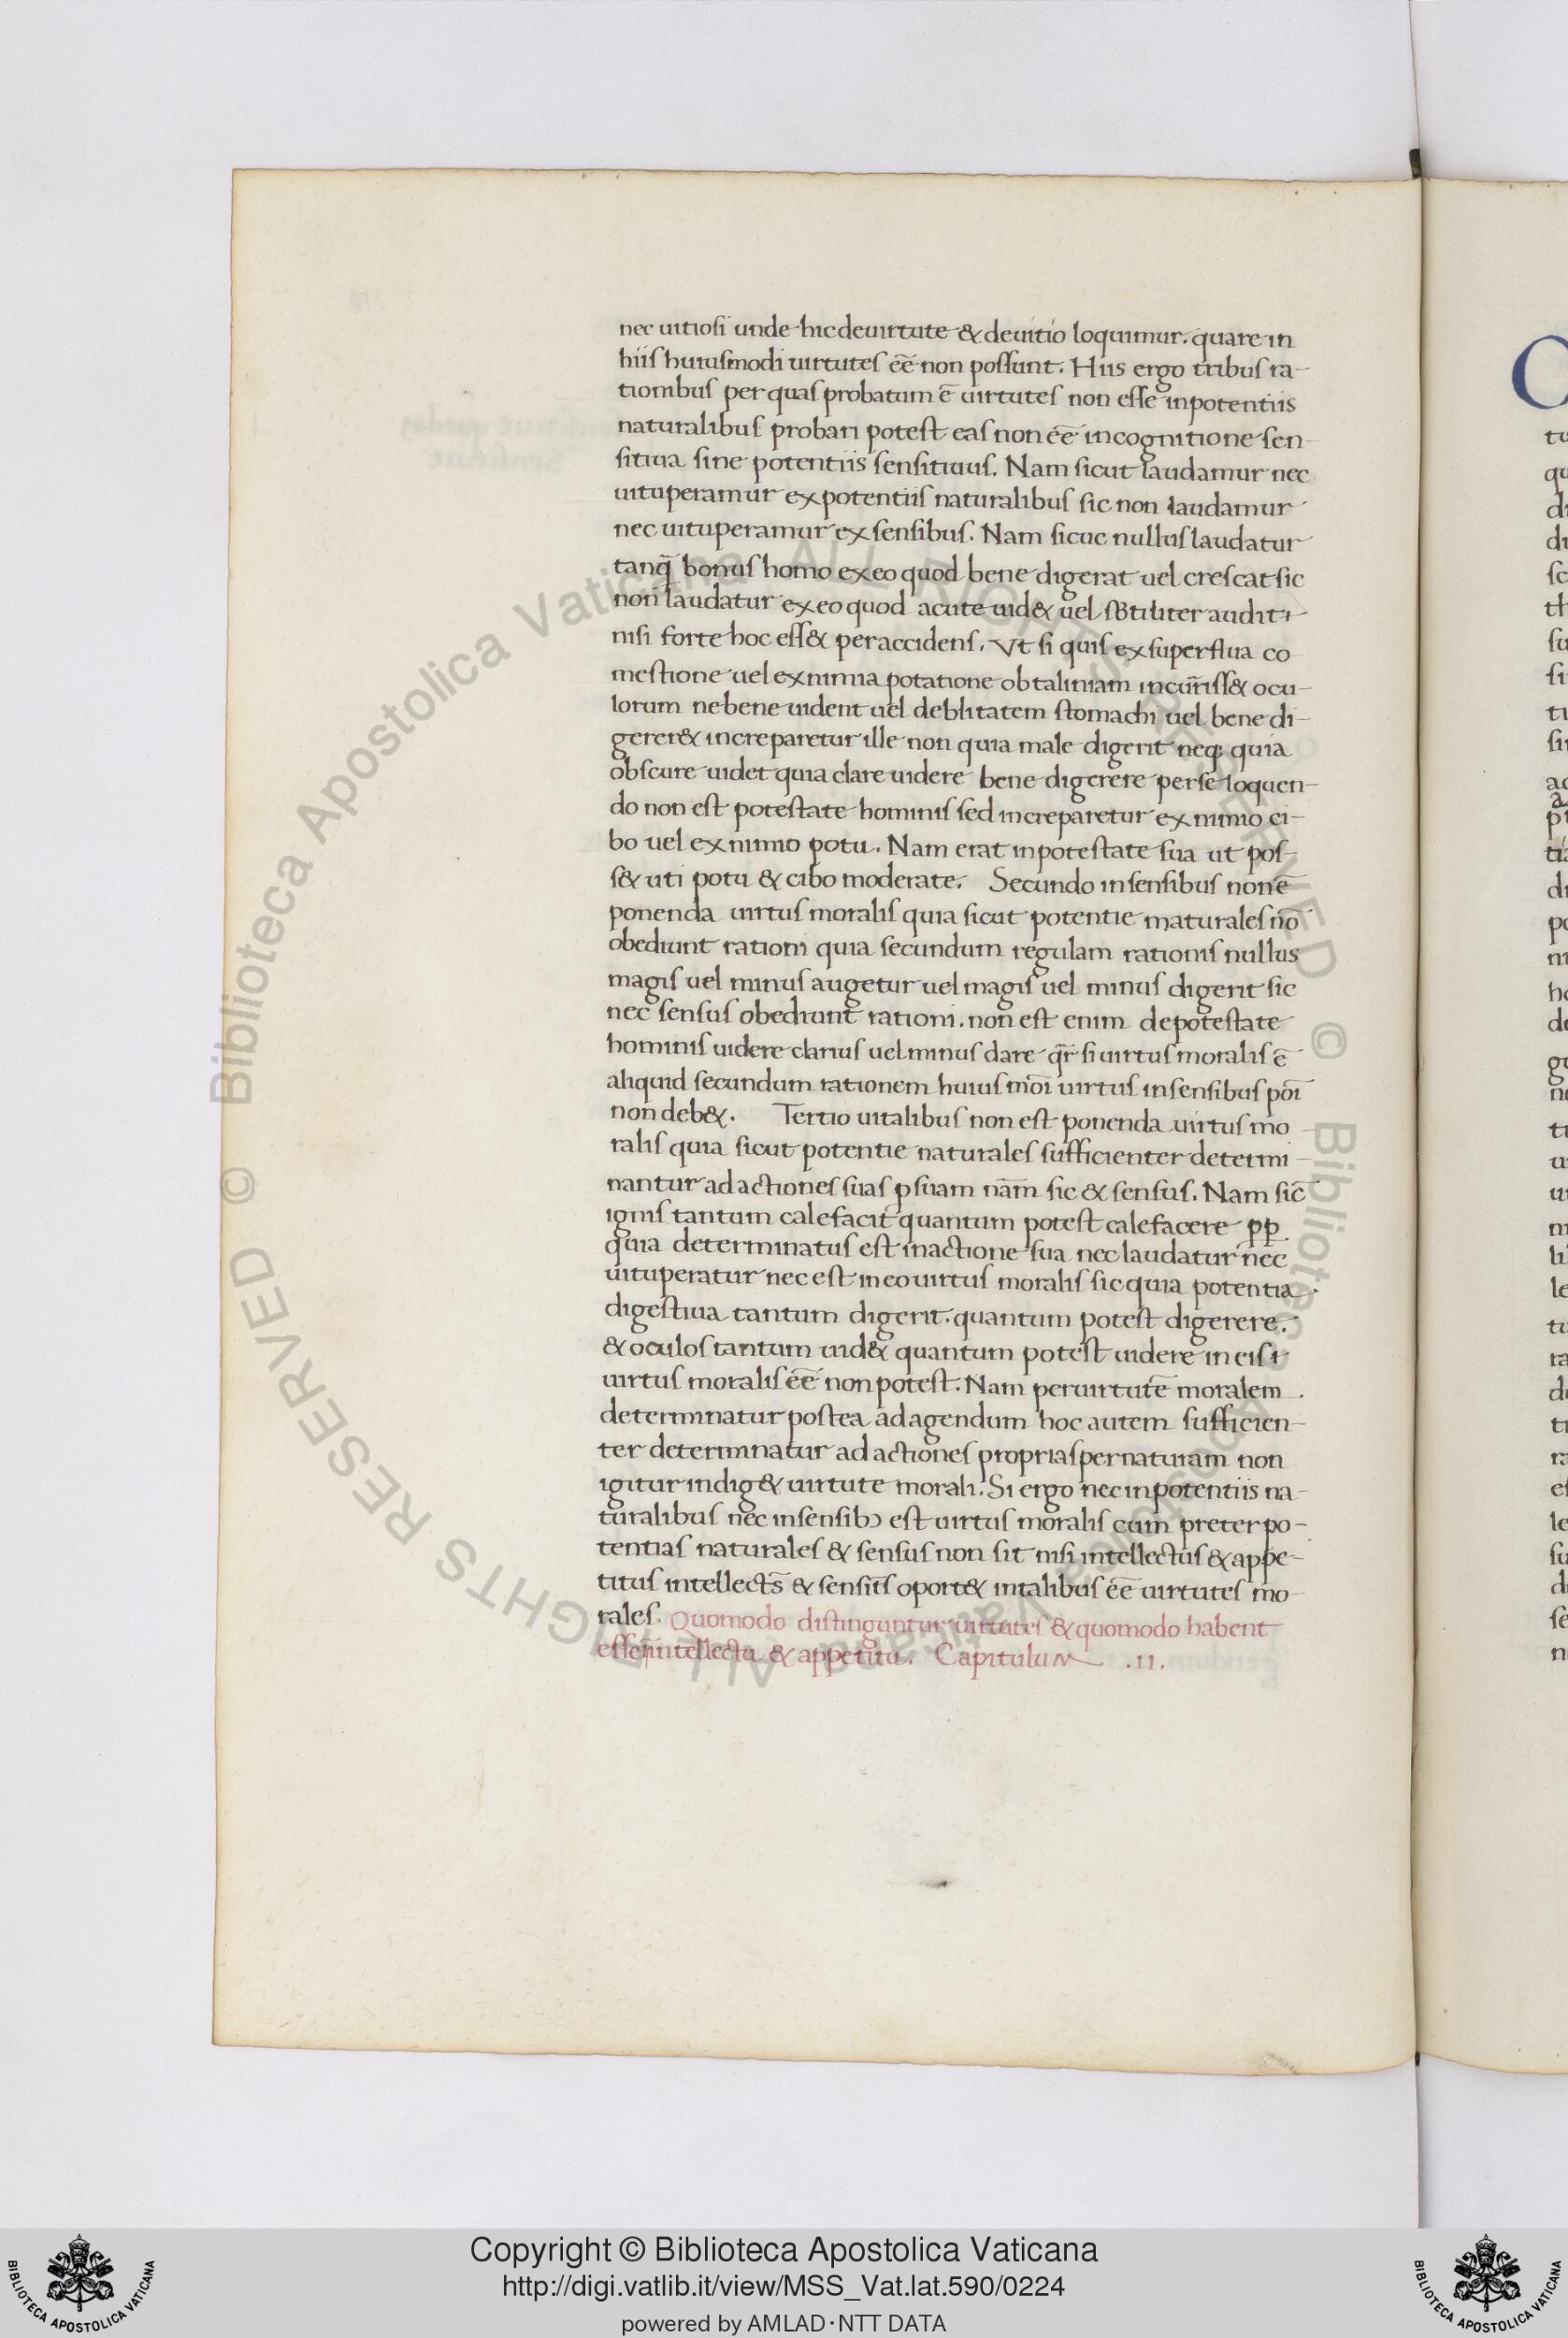 nec uitiosi unde hic deuirtute & deuitio loquimur. quare in
hiis huiusmodi uirtutes ēē non possunt. Hiis ergo tribus ra-
tionibus per quas probatum ē uirtutes non esse inpotentiis
naturalibus probari potest eas non ēē incognitione sen
sitiua sine potentiis sensitiuus. Nam sicut laudamur nec
uituperamur expotentiis naturalibus sic non laudamur
nec uituperamur ex sensibus. Nam sicuc nullus laudatur
tanq̃ bonus homo exeo quod bene digerat uel crescat sic
non laudatur exeo quod acute uid& uel sBtiliter audit
nisi forte hoc ess& peraccidens. Vt si quis exsuperflua co
mestione uel exnimia potatione obtaliniam incūriss& ocu-
lorum nebene uident uel deblitatem stomachi uel bene di-
gerer& increparetur ille non quia male digerit neq; quia
obscure uidet quia clare uidere bene digerere perse loquen-
do non est potestate hominis sed increparetur ex nimio ci-
bo uel ex nimio potu. Nam erat inpotestate sua ut pos-
s& uti potu & cibo moderate. Secundo in sensibus non ē
ponenda uirtus moralis quia sicut potentie maturales nō
obediunt rationi quia secundum regulam rationis nullus
magis uel minus augetur uel magis uel minus digerit sic
nec sensus obediunt rationi. non est enim depotestate
hominis uidere clarius uel minus dare q̄r si uirtus moralis ē
aliquid secundum rationem huius mōi uirtus insensibus poī
non deb&. Tertio uitalibus non est ponenda uirtus mo
ralis quia sicut potentie naturales sufficienter determi-
nantur ad actiones suas psuam nām sic & sensus. Nam sic̄
ignis tantum calefacit quantum potest calefacere pp
quia determinatus est inactione sua nec laudatur nec
uituperatur nec est in eo uirtus moralis sic quia potentia
digestiua tantum digerit. quantum potest digerere.
& oculos tantum uid& quantum potest uidere in eis
uirtus moralis ēē non potest. Nam peruirtutē moralem
determinatur postea ad agendum hoc autem sufficien-
ter determinatur ad actiones proprias pernaturam non
igitur indig& uirtute morali. Si ergo nec inpotentiis na-
turalibus nec insensibↄ est uirtus moralis cum preter po-
tentias naturales & sensus non sit nisi intellectus & appe-
titus intellects̄ & sensit̄s oport& intalibus ēē uirtutes mo
rales. Quomodo distinguntur uirtutes & quomodo habent
esse intellectu & appetitu. Capitulum .II.
C
Copyright © Biblioteca Apostolica Vaticana
http://digi.vatlib.it/view/MSS_Vat.lat.590/0224
powered by AMLAD·NTT DATA
BIBLIOTECA APOSTOLICA VATICANA
BIBLIOTECA APOSTOLICA VATICANA
© Biblioteca Apostolica Vaticana ALL RIGHTS RESERVED © Biblioteca Apostolica Vaticana ALL RIGHTS RESERVED